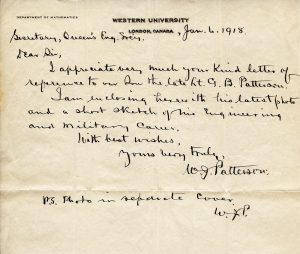 DEPARTMENT OF MATHEMATICS
WESTERN UNIVERSITY
LONDON, CANADA, Jan. 6. 1918.
Secretary, Queen's Eng. Socy.
Dear Sir,
I appreciate very much your kind letter of
reference to our Son the late Lt G. B. Patterson.
I am enclosing herewith his latest photo
and a short sketch of his Engineering
and Military Career.
With best wishes,
Yours very truly,
W. J. Patterson.
P.S. Photo in separate cover.
W. J. P.